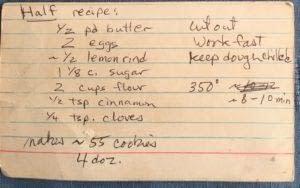 Half recipe:
1/2 pd butter
2 eggs
~ 1/2 lemon rind
1 1/8 c. sugar
2 cups flour
1/2 tsp cinnamon
1/4 tsp. cloves
makes ~ 55 cookies
4 doz.
cut out
work fast
keep dough chilled
350°
~ 8-10 min